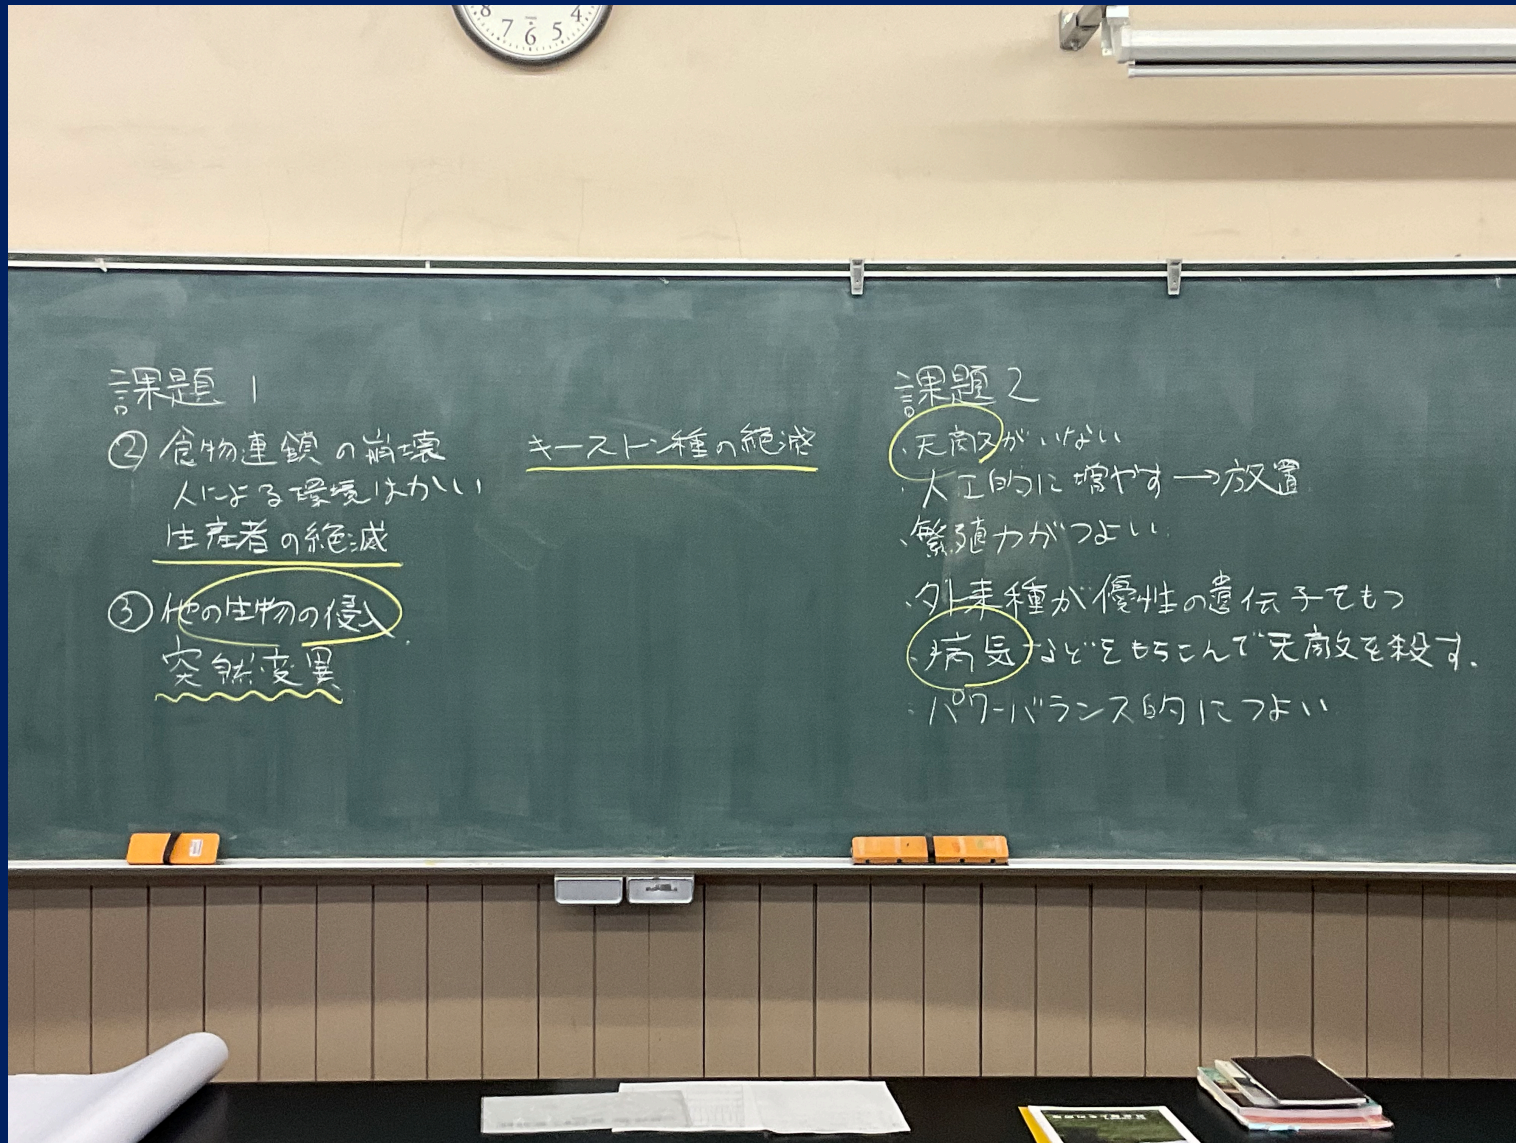 8 7 6 5 4
課題 1
② 食物連鎖の崩壊
人による環境はかい
生産者の絶滅
③ 他の生物の侵入
突然変異
キーストン種の絶滅
課題2
・天敵がいない
・人工的に増やす→放置
・繁殖力がつよい
・外来種が優性の遺伝子をもつ
・病気などをもちこんで天敵を殺す.
・パワーバランス的につよい